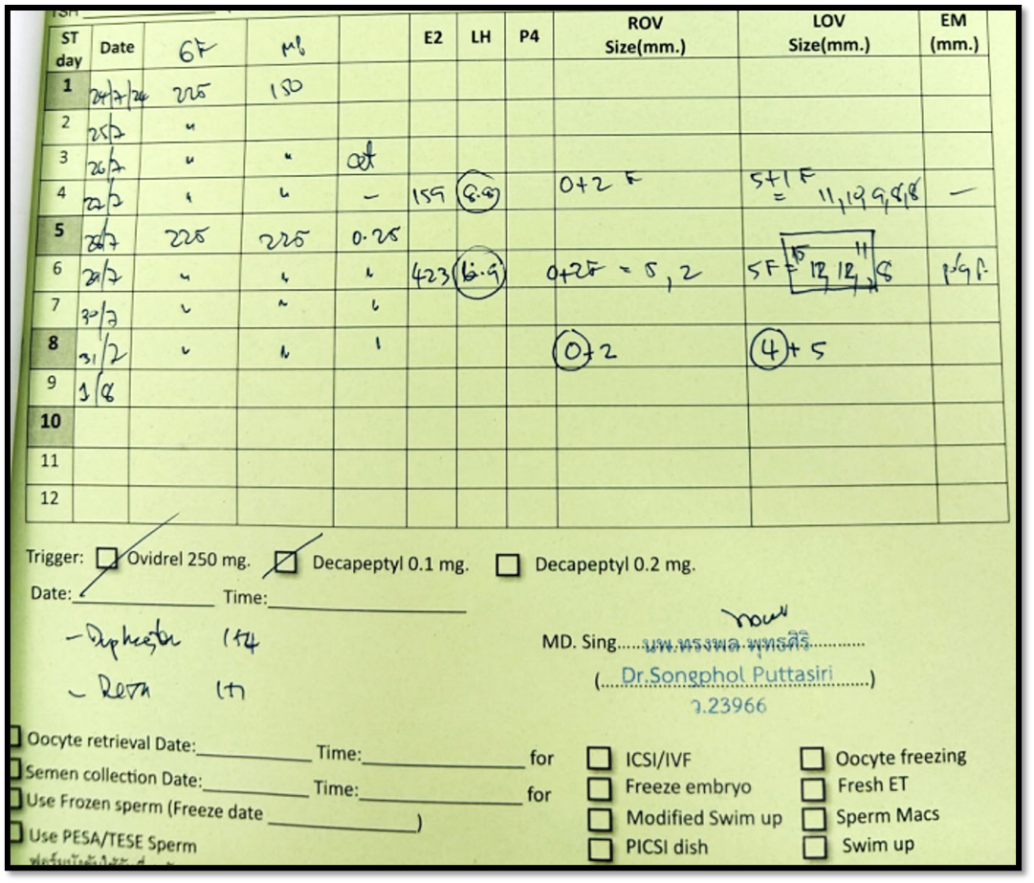 ST day Date GF E2 LH P4 ROV Size(mm.) LOV Size(mm.) EM (mm.)
1 24/7/24 225 150
2 25/7 "
3 26/7 " " cet
4 27/7 " " - 159 8.8 0+2 F 5+1 F = 11, 9, 8, 8 —
5 28/7 225 225 0.25
6 29/7 " " " 423 0+2F = 5, 2 5F = 15 12, 12, 11 8
7 30/7 " " "
8 31/7 " " " 0+2 4+5
9 1/8
10
11
12
Trigger: Ovidrel 250 mg. Decapeptyl 0.1 mg. Decapeptyl 0.2 mg.
Date: Time:
MD. Sing. นพ.ทรงพล พุทธศิริ
(Dr.Songphol Puttasiri)
ว.23966
Oocyte retrieval Date: Time: for ICSI/IVF Oocyte freezing
Semen collection Date: Time: for Freeze embryo Fresh ET
Use Frozen sperm (Freeze date ) Modified Swim up Sperm Macs
Use PESA/TESE Sperm PICSI dish Swim up